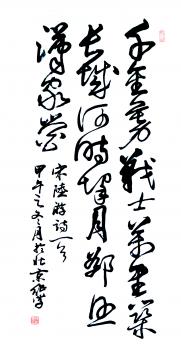 千金募戰士萬里築
長城何時青冢月卻照
漢家營
宋陸游詩一首
甲午之冬月於北京